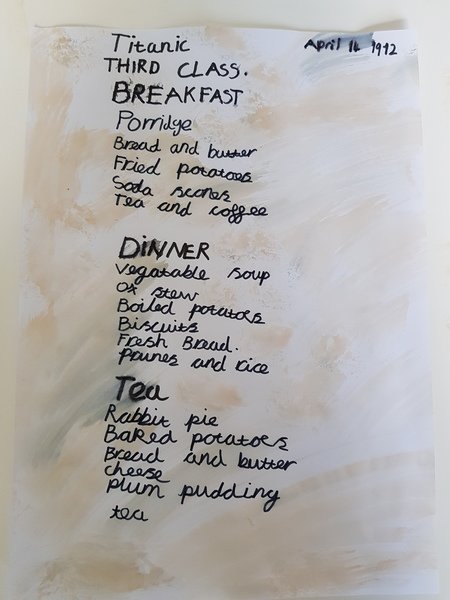 Titanic
April 14 1912
THIRD CLASS.
BREAKFAST
Porridge
Bread and butter
Fried potatoes
Soda scones
Tea and coffee
DINNER
Vegatable soup
Ox stew
Boiled potatoes
Biscuits
Fresh Bread.
Prunes and rice
Tea
Rabbit pie
Baked potatoes
Bread and butter
cheese
plum pudding
tea